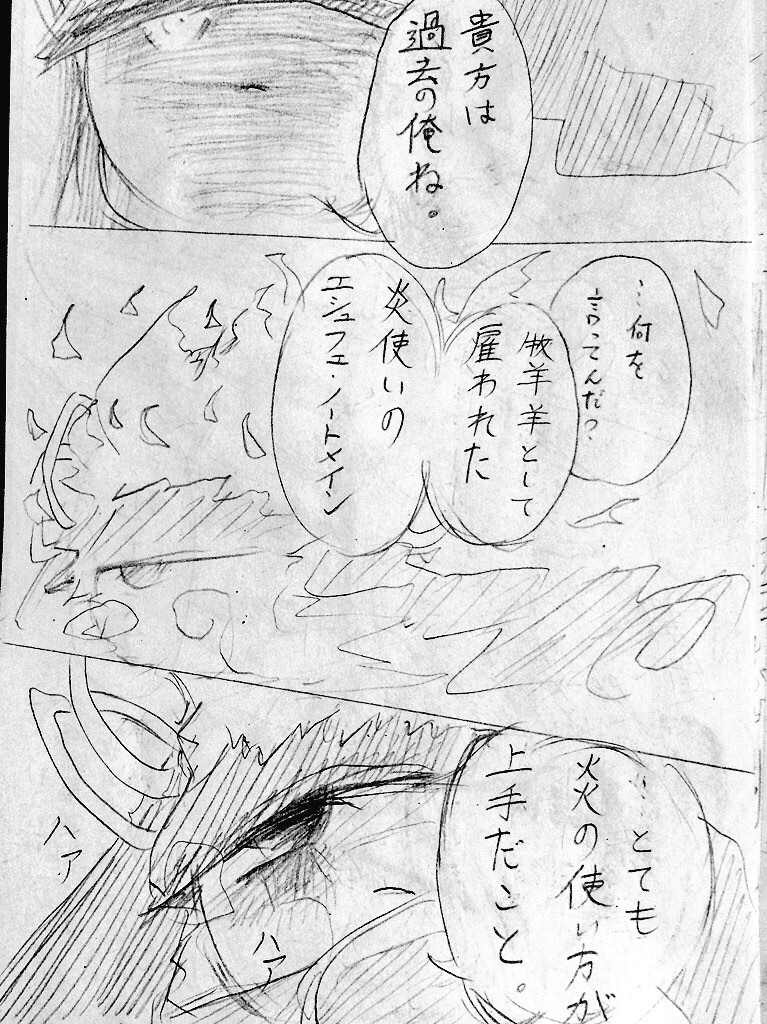 貴方は
過去の俺ね。
…何を
言ってんだ?
牧羊羊として
雇われた
炎使いの
エシュフェ・ノートメイン
…とても
炎の使い方が
上手だこと。
ハァ
ハァ